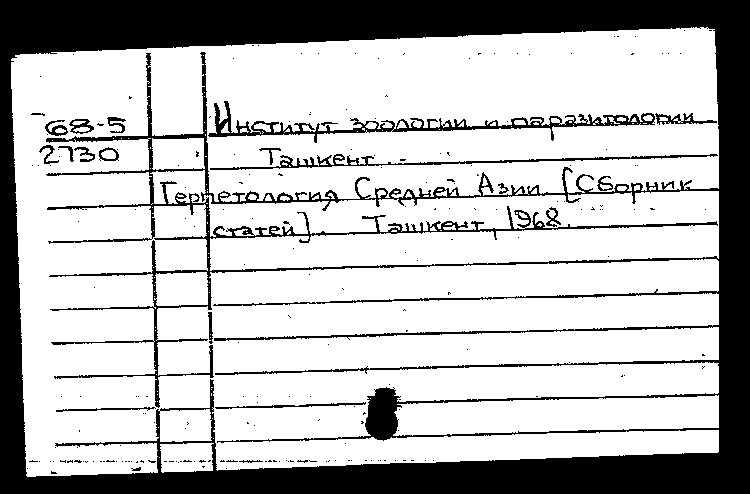 68-5
2730
Институт зоологии и паразитологии
Ташкент.
Герпетология Средней Азии. [Сборник
статей]. Ташкент, 1968.